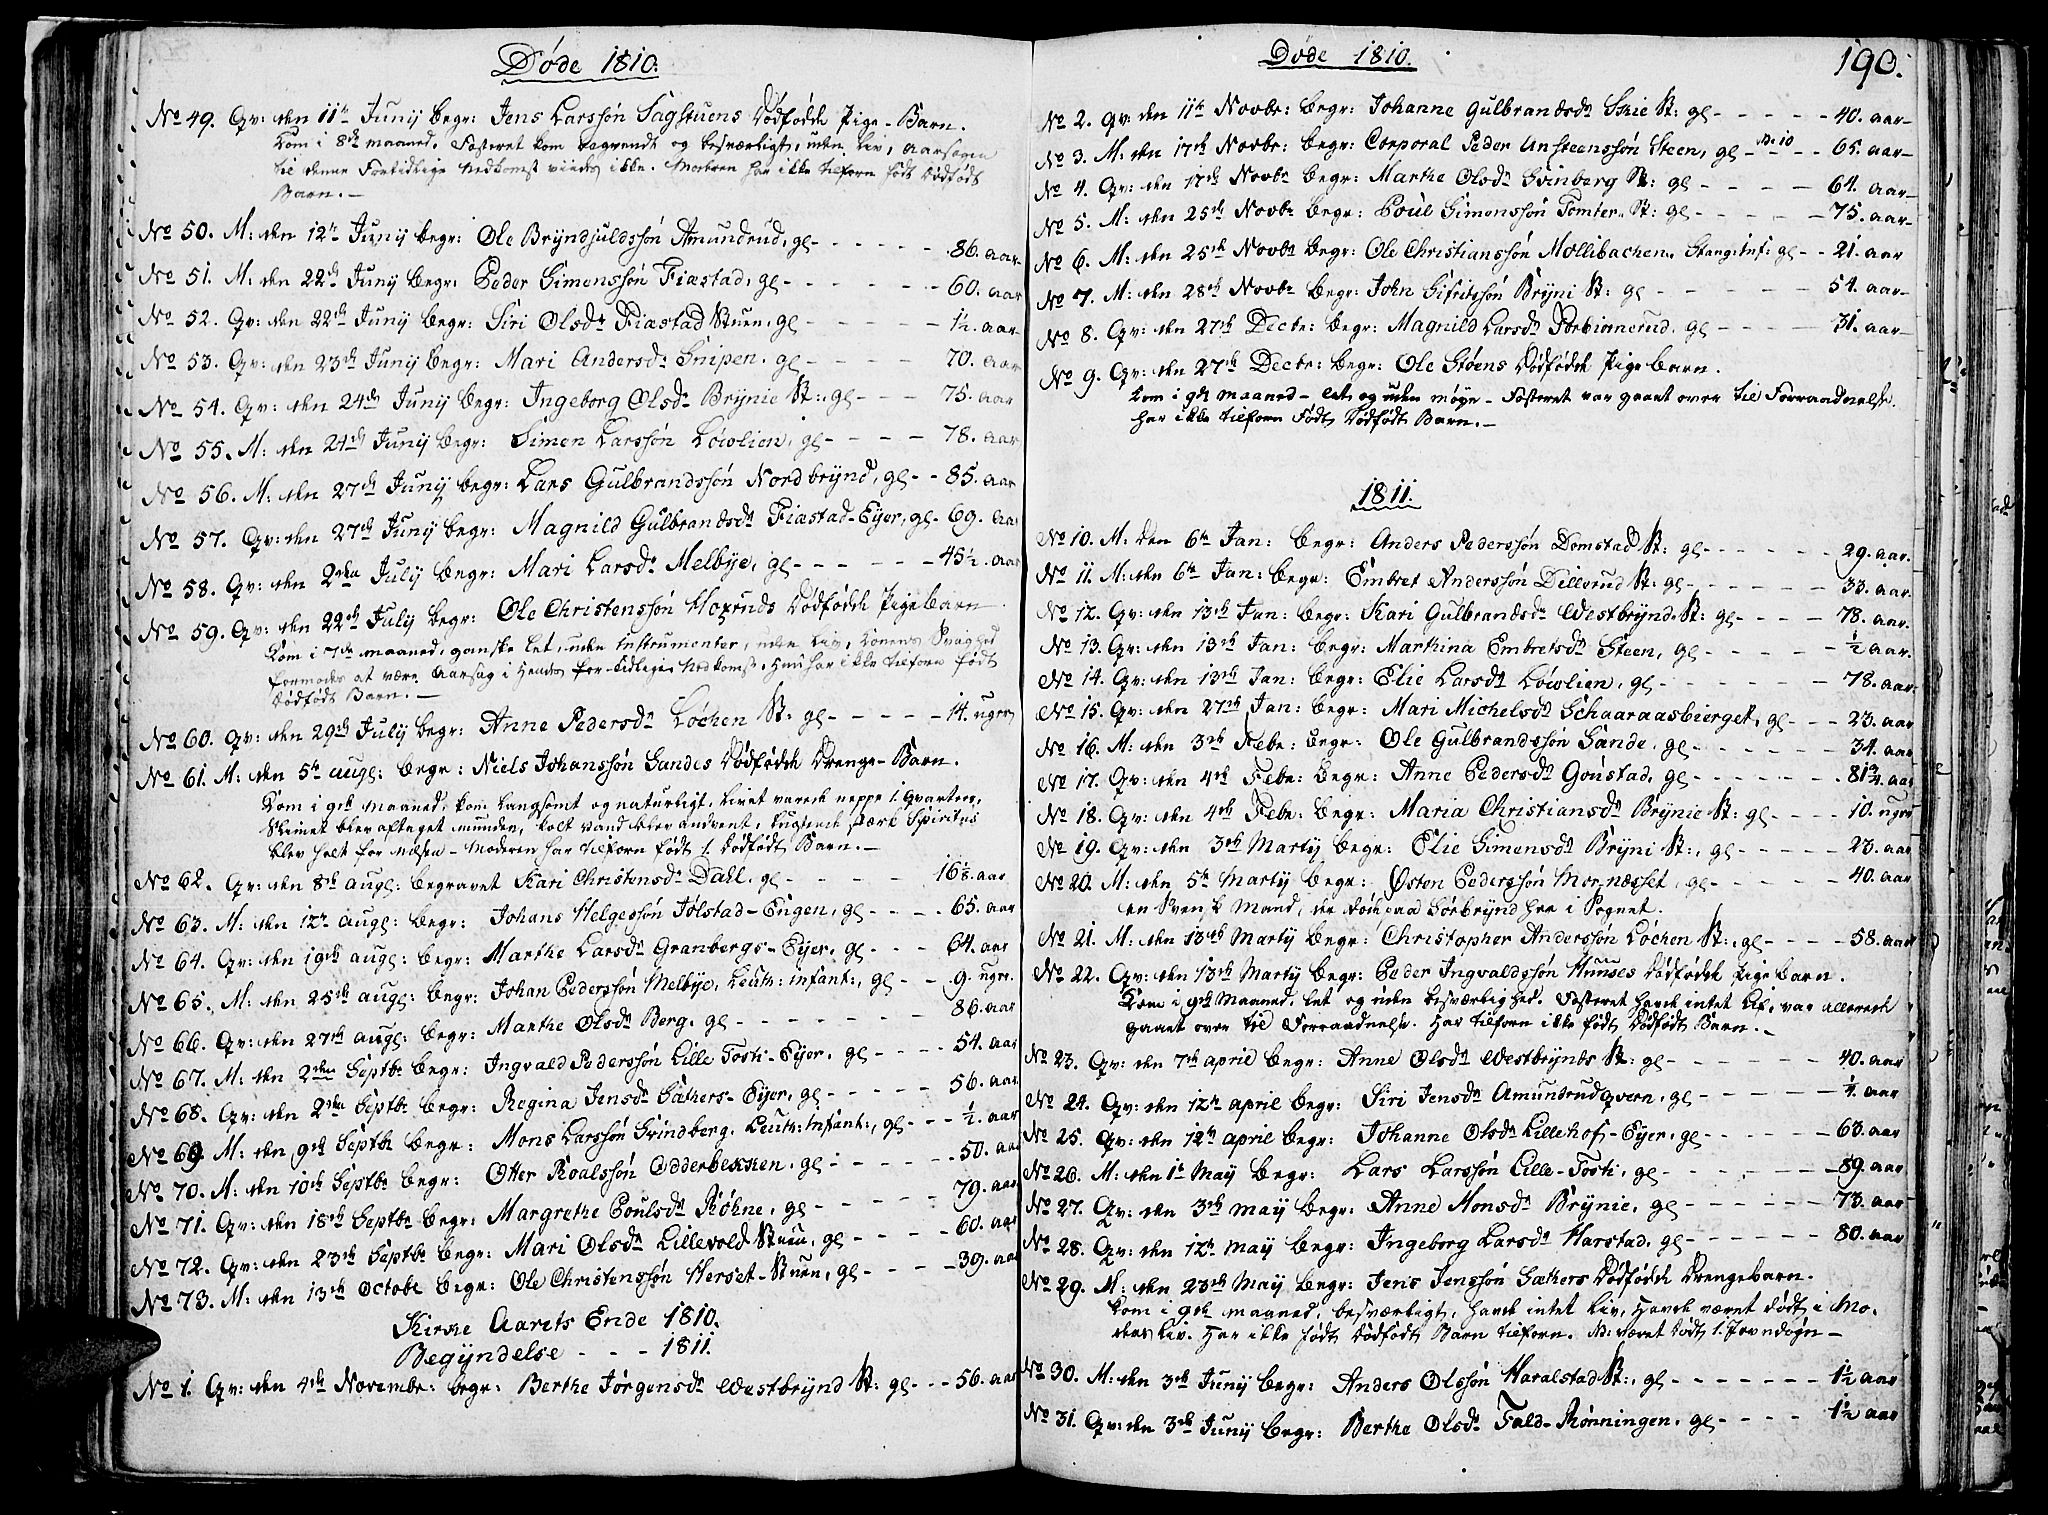 Døde 1810.
No 49. Qv: den 11te Junÿ begr: Jens Larssøn Sagstuens dødfødde Pige-Barn.
Kom i 8de maaned. Fosteret kom og besværligt, uden Liv, aarsagen
til denne Fortidlige Nedkomst viides ikke. Moderen har ikke tilforn født dødfødt
Barn.-
No 50. M: den 12te Junÿ begr: Ole Brÿndjuldssøn Amundrud, gl - - - - - - 86. aar
No 51. M: den 22de Junÿ begr: Peder Simenssøn Fiæstad, gl - - - - - - 60. aar
No 52. Qv: den 22de Junÿ begr: Siri Olsdr Fiæstad Stuen, gl - - - - - 1½. aar
No 53. Qv: den 23de Junÿ begr: Mari Andersdr Snipen. gl - - - - - 70. aar
No 54. Qv: den 24de Junÿ begr: Ingeborg Olsdr Brÿnie St:, gl - - - 75. aar
No 55. M: den 24de Junÿ begr: Simen Larssøn Løwlien, gl - - - - 78. aar
No 56. M: den 27de Junÿ begr: Lars Gulbrandssøn Nordbrÿnd, gl - - 85. aar
No 57. Qv: den 27de Junÿ begr: Magnild Gulbrandsdr Fiæstad-Eÿer, gl - 69. aar
No 58. Qv: den 2den Julÿ begr: Mari Larsdr Melbÿe, gl - - - - - - 45½. aar
No 59. Qv: den 22de Julÿ begr: Ole Christenssøn Hoxruds dødfødde Pigebarn.
Kom i 7de maaned, ganske let, uden instrumenter, uden Liv, Konens Svaghed
formodes at være Aarsag i Hendes for-tidlige Nedkomst, Hun har ikke tilforn født
dødfødt Barn.-
No 60. Qv: den 29de Julÿ begr: Anne Pedersdr Løchen St: gl - - - - - 14. uger
No 61. M: den 5te augl: begr: Niels Johanssøn Sandes dødfødde Drenge-Barn.
Kom i 9de maaned, kom langsomt og naturligt, Livet varede neppe 1. qvarteer,
Sliimet blev aftaget munden, kolt vand blev andvent, lugtende stærk Spiritus
blev holt for Næsen - Moderen har tilforn født 1. dødfødt Barn.-
No 62. Qv: den 8de augl: begravet Kari Christensdr Dall. gl - - - - - 16 . aar
No 63. M: den 12te augl: begr: Johans Helgessøn Jølstad-Engen, gl - - - - 65. aar
No 64. Qv: den 19de augl: begr: Marthe Larsdr Granbergs-Eÿer, gl - - - 64. aar
No 65. M: den 25de augl: begr: Johan Pederssøn Melbÿe, Leuth: infant:, gl - - 9. ugr.
No 66. Qv: den 27de augl: begr: Marthe Olsdr Berg. gl - - - - - - - 86. aar
No 67. M: den 2den Septbr begr: Ingvald Pederssøn Lille Tosti-Eÿer, gl - - - - 54. aar
No 68. Qv: den 2den Septbr begr: Regina Jensdr Sathers-Eÿer, gl - - - - 56. aar
No 69 M: den 9de Septbr begr: Mons Larssøn Svindberg, Leuth: Infant:, gl - - - ½. aar
No 70. M: den 10de Septbr begr: Otter Roalssøn Odderbekken, gl - - - - - - 50. aar
No 71. Qv: den 18de Septbr begr: Margrethe Poulsdr Røhne, gl - - - - - 79. aar
No 72. Qv: den 23de Septbr begr: Mari Olsdr Lillevold Stuen, gl - - - - - 60. aar
No 73. M: den 13de Octobr begr: Ole Christenssøn Herset-Stuen, gl - - - - - 39. aar
Kirke Aarets Ende 1810.
Begÿndelse - - - 1811.
No 1. Qv: den 4de Novembr: begr: Berthe Jørgensdr Westbrÿnd St: gl - - - 56. aar
Døde 1810.
190.
No 2. Qv: den 11te Novbr: begr: Johanne Gulbrandsdr Skie St: gl - - - - - 40. aar
No 3. M: den 17de Novbr: begr: Corporal Peder Ansteenssøn Steen, gl - - - 65. aar
No 4. Qv: den 17de Novbr begr: Marthe Olsdr Svinberg St: gl - - - - - 64. aar
No 5. M: den 25de Novbr begr: Poul Simenssøn Tomter. St: gl - - - - - 75. aar
No 6. M: den 25de Novbr begr: Ole Christianssøn Mollibachen. Stang: Inf: gl - - 21. aar
No 7. M: den 28de Novbr begr: John Sifritssøn Brÿni St: gl - - - - - 54. aar
No 8. Qv: den 27de Decbr: begr: Magnild Larsdr Torbiørnerud, gl - - - - 31. aar
No 9. Qv: den 27de Decbr: begr: Ole Støens dødfødde Pige barn.
Kom i 9de maaned - let og uden møye - Fosteret var gaaet over til Forraadnelse.
har ikke tilforn Født dødfødt Barn.-
1811.
No 10. M: den 6te Jan: begr: Anders Pederssøn Domstad St: gl - - - - - - 29. aar.
No 11. M: den 6te Jan: begr: Embret Anderssøn Dillerud St: gl - - - - - 33. aar.
No 12. Qv: den 13de Jan: begr: Kari Gulbrandsdr Westbrÿnd St: gl - - - - 78. aar.
No 13. Qv: den 13de Jan: begr: Marthina Embretsdr Steen, gl - - - - - - ½ aar.
No 14. Qv: den 13de Jan: begr: Elie Larsdr Løwlien, gl - - - - - - - 78. aar.
No 15. Qv: den 27de Jan: begr: Mari Michelsdr Schaaraasbierget, gl - - - 23. aar
No 16. M: den 3de Febr: begr: Ole Gulbrandssøn Sande, gl - - - - - - - 34. aar
No 17. Qv: den 4de Febr: begr: Anne Pedersdr Goustad, gl - - - - - - 81¾. aar
No 18. Qv: den 4de Febr: begr: Maria Christiansdr Brÿnie St: gl - - - - 10. uger
No 19. Qv: den 3de Martÿ begr: Elie Simensdr Brÿni St:, gl - - - - - 23. aar
No 20. M: den 5te Martÿ begr: Østen Pederssøn Mornæsset, gl - - - - - 40. aar
en Svensk Mand, der døde paa Sørbrÿnd her i Sognet.
No 21. M: den 13de Martÿ begr: Christopher Anderssøn Løchen St:, gl - - - - 58. aar
No 22. Qv: den 13de Martÿ begr: Peder Ingvaldssøn Huuses dødfødde Pigebarn.
Kom i 9de Maaned, let og uden besværlighed. Fosteret havde intet Lif, var allerede
gaaet over til Forraadnelse. Har tilforn ikke født dødfødt Barn.-
No 23. Qv: den 7de april begr: Anne Olsdr Westbrÿnds St: gl - - - - - 40. aar
No 24. Qv: den 12te april begr: Siri Jensdr Amundrudqvern, gl - - - - - ¼. aar
No 25. Qv: den 12te april begr: Johanne Olsdr Lillehof-Eÿer, gl - - - - - 63. aar
No 26. M: den 1te Maÿ begr: Lars Larssøn Lille-Tosti, gl - - - - - - 89. aar
No 27. Qv: den 3de maÿ begr: Anne Monsdr Brÿnie, gl - - - - - - 73. aar
No 28. Qv: den 12te Maÿ begr: Ingeborg Larsdr Harstad, gl - - - - - 80. aar
No 29. M: den 23de Maÿ begr: Jens Jenssøn Sathers dødfødde Drengebarn.
Kom i 9de maaned, besværligt, havde intet Liv, Havde været dødt i Mo-
ders Liv. Har ikke født dødfødt Barn tilforn. NB: været dødt 1. Jevndøgn -
No 30. M: den 3de Junÿ begr: Anders Olssøn Haralstad St:, gl - - - - - - 1½ aar
No 31. Qv: den 3de Junÿ begr: Berthe Olsdr Fald-Rønningen, gl - - - - 1½ aar